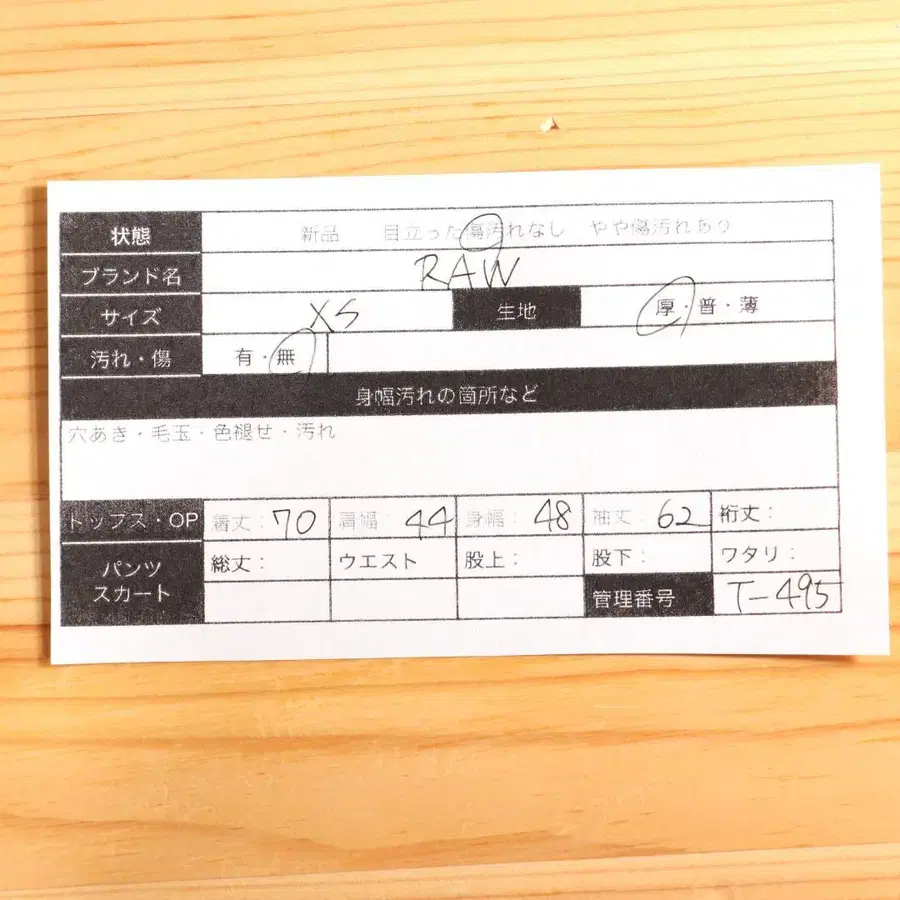 状態 新品 目立った傷汚れなし やや傷汚れあり
ブランド名 RAW
サイズ XS 生地 厚・普・薄
汚れ・傷 有・無
身幅汚れの箇所など
穴あき・毛玉・色褪せ・汚れ
トップス・OP 着丈: 70 肩幅: 44 身幅: 48 袖丈: 62 裄丈:
パンツ スカート 総丈: ウエスト 股上: 股下: ワタリ:
管理番号 T-495